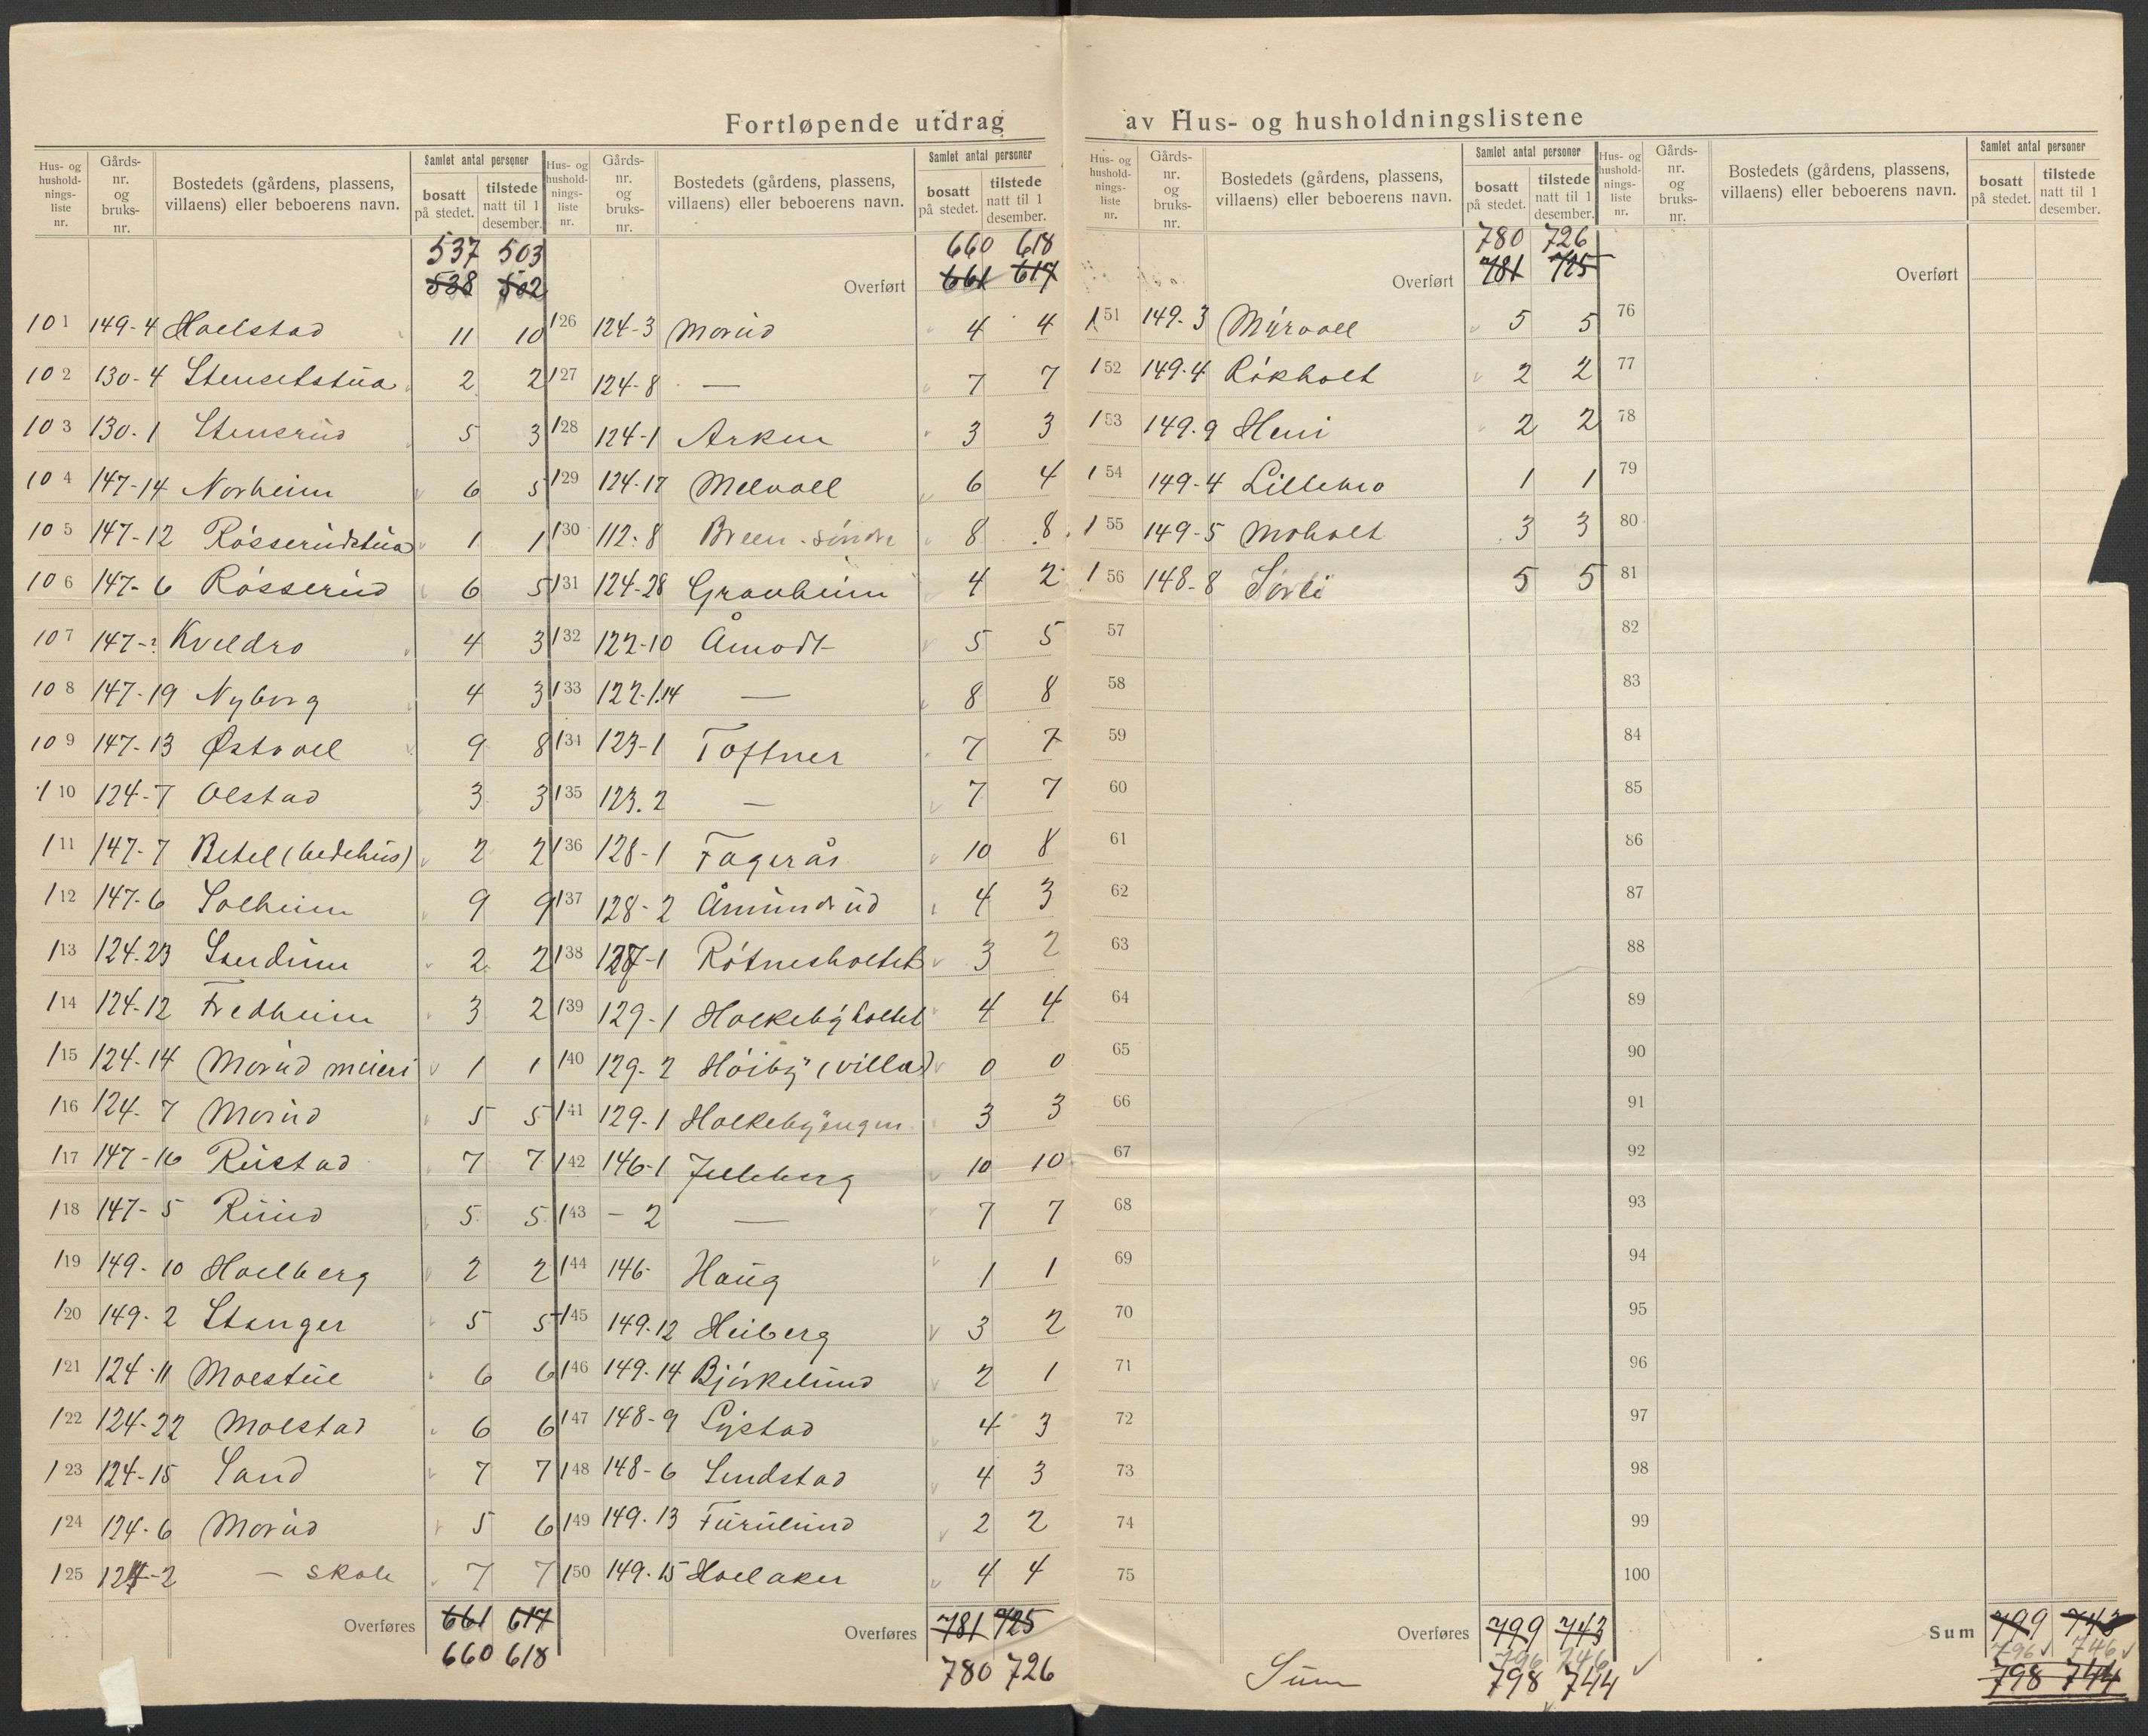 Fortløpende utdrag av Hus- og husholdningslistene
Hus- og husholdnings-liste nr. Gårds-nr. og bruks-nr. Bostedets (gårdens, plassens, villaens) eller beboerens navn. Samlet antal personer bosatt på stedet. tilstede natt til 1 desember.
537 503
538 502
101 149-4 Hoelstad 11 10
102 130-4 Stensetstua 2 2
103 130-1 Stensrud 5 3
104 147-14 Norheim 6 5
105 147-12 Røsserudstua 1 1
106 147-6 Røsserud 6 5
107 147-? Kveldro 4 3
108 147-19 Nyborg 4 3
109 147-13 Østvoll 9 8
110 124-7 Olstad 3 3
111 147-7 Betel (bedehus) 2 2
112 147-6 Solheim 9 9
113 124-23 2 2
114 124-12 Fredheim 3 2
115 124-14 Morud meieri 1 1
116 124-7 Morud 5 5
117 147-16 Rustad 7 7
118 147-5 Ruud 5 5
119 149-10 Hoelberg 2 2
120 149-2 Stanger 5 5
121 124-11 Moestue 6 6
122 124-22 Moestad 6 6
123 124-15 Sand 7 7
124 124-6 Morud 5 6
125 124-2 — skole 7 7
Overføres 661 617
660 618
Hus- og husholdnings-liste nr. Gårds-nr. og bruks-nr. Bostedets (gårdens, plassens, villaens) eller beboerens navn. Samlet antal personer bosatt på stedet. tilstede natt til 1 desember.
660 618
Overført 661 617
126 124-3 Morud 4 4
127 124-8 — 7 7
128 124-1 Arken 3 3
129 124-17 Melvoll 6 4
130 112-8 Breen søndre 8 8
131 124-28 Granheim 4 2
132 122-10 Åmodt 5 5
133 122-1.14 — 8 8
134 123-1 Toftner 7 7
135 123.2 — 7 7
136 128-1 Fagerås 10 8
137 128-2 Åmundrud 4 3
138 127-1 Røtnesholtet 3 2
139 129-1 Holkebyholtet 4 4
140 129-2 Høiby (villa) 0 0
141 129-1 Holkebyengen 3 3
142 146-1 Julleberg 10 10
143 - 2 — 7 7
144 146- Haug 1 1
145 149-12 Heiberg 3 2
146 149-14 Bjørkelund 2 1
147 148-9 Lystad 4 3
148 148-6 Lundstad 4 3
149 149-13 Furulund 2 2
150 149-15 Hoelaker 4 4
Overføres 781 725
780 726
Hus- og husholdnings-liste nr. Gårds-nr. og bruks-nr. Bostedets (gårdens, plassens, villaens) eller beboerens navn. Samlet antal personer bosatt på stedet. tilstede natt til 1 desember.
780 726
Overført 781 725
151 149-3 Myrvoll 5 5
152 149-4 Røkholt 2 2
153 149-9 Heni 2 2
154 149-4 Lillemo 1 1
155 149-5 Moholt 3 3
156 148-8 Sørli 5 5
57
58
59
60
61
62
63
64
65
66
67
68
69
70
71
72
73
74
75
Overføres 799 743
796 746
Sum 798 744
Hus- og husholdnings-liste nr. Gårds-nr. og bruks-nr. Bostedets (gårdens, plassens, villaens) eller beboerens navn. Samlet antal personer bosatt på stedet. tilstede natt til 1 desember.
Overført
76
77
78
79
80
81
82
83
84
85
86
87
88
89
90
91
92
93
94
95
96
97
98
99
100
Sum 799 743
796 746
798 744